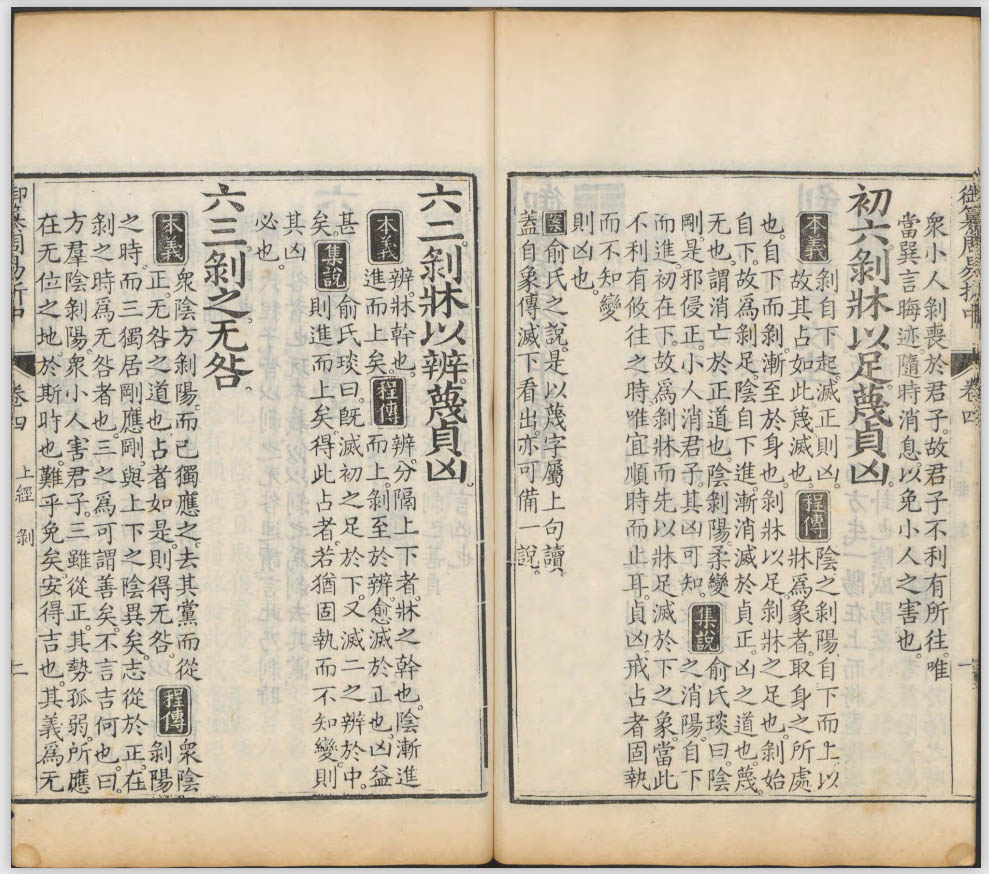 御纂周易折中
卷四
衆小人剝喪於君子。故君子不利有所往。唯
當巽言晦迹。隨時消息。以免小人之害也。
初六。剝牀以足。蔑貞凶。
本義
剝自下起。滅正則凶。
故其占如此。蔑滅也。
程傳
陰之剝陽。自下而上。以
牀爲象者。取身之所處
也。自下而剝。漸至於身也。剝牀以足。剝牀之足也。剝始
自下。故爲剝足。陰自下進。漸消滅於貞正。凶之道也。蔑。
无也。謂消亡於正道也。陰剝陽。柔變
剛。是邪侵正。小人消君子。其凶可知。
集說
俞氏琰曰。陰
之消陽。自下
而進。初在下。故爲剝牀而先以牀足滅於下之象。當此
不利有攸往之時。唯宜順時而止耳。貞凶。戒占者固執
而不知變
則凶也。
案
俞氏之說。是以蔑字屬上句讀。
蓋自象傳滅下看出。亦可備一說。
六二。剝牀以辨。蔑貞凶。
本義
辨。牀幹也。
進而上矣。
程傳
辨。分隔上下者。牀之幹也。陰漸進
而上。剝至於辨。愈滅於正也。凶益
甚
矣。
集說
俞氏琰曰。旣滅初之足於下。又滅二之辨於中。
則進而上矣。得此占者。若猶固執而不知變。則
其凶
必也。
六三。剝之无咎。
本義
衆陰方剝陽而己獨應之。去其黨而從
正。无咎之道也。占者如是。則得无咎。
程傳
衆陰
剝陽
之時。而三獨居剛應剛。與上下之陰異矣。志從於正。在
剝之時。爲无咎者也。三之爲可謂善矣。不言吉何也。曰。
方羣陰剝陽。衆小人害君子。三雖從正。其勢孤弱。所應
在无位之地。於斯時也。難乎免矣。安得吉也。其義爲无
御纂周易折中
卷四
上經
剝
二